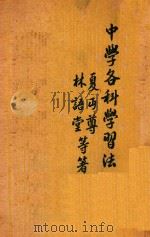 中學各科學習法
夏丏尊
林語堂等著